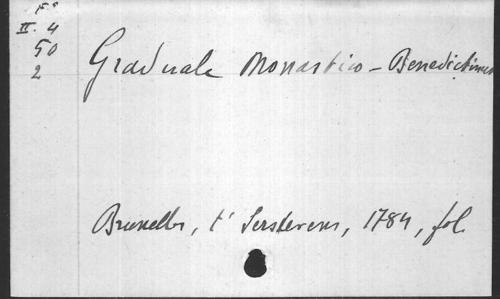 F°
II. 4
50
2
Graduale Monastico-Benedictinum
Bruxelles, t' Serstevens, 1784, fol.